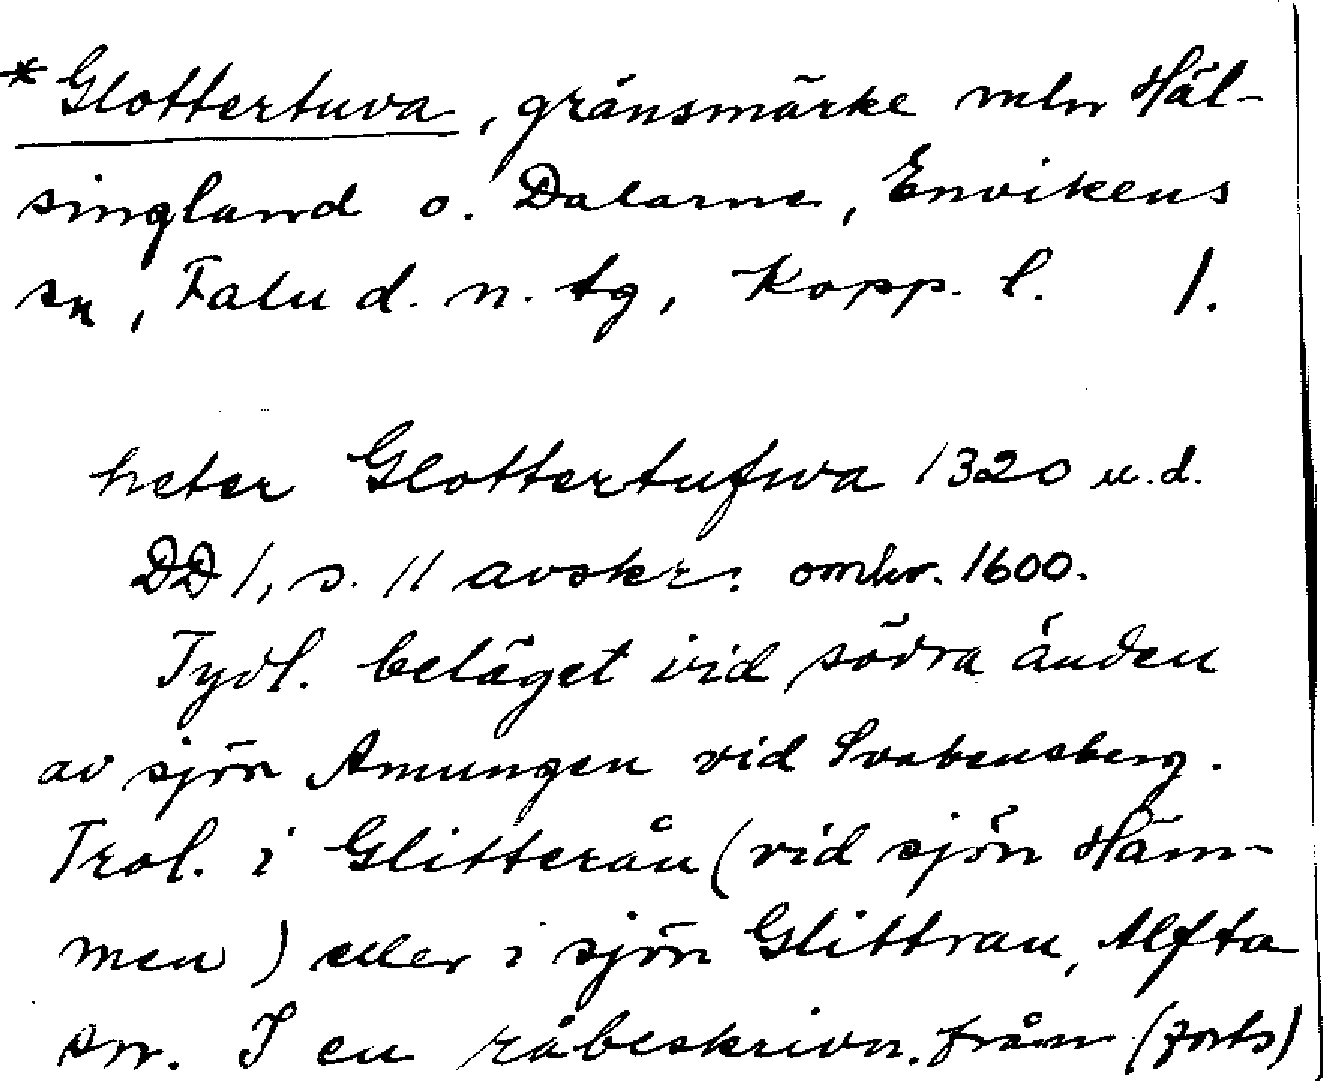 *Glottertuva, gränsmärke mln Häl-
singland o. Dalarne, Envikens
sn, Falu d. n. tg, Kopp. l. 1.
heter Glottertufwa 1320 u.d.
DD 1, s. 11 avskr. omkr. 1600.
Tydl. beläget vid södra änden
av sjön Amungen vid Svabensberg.
Trol. i Glitterån (vid sjön Häm-
men) eller i sjön Glittran, Alfta
sn. I en råbeskrivn. från (forts)